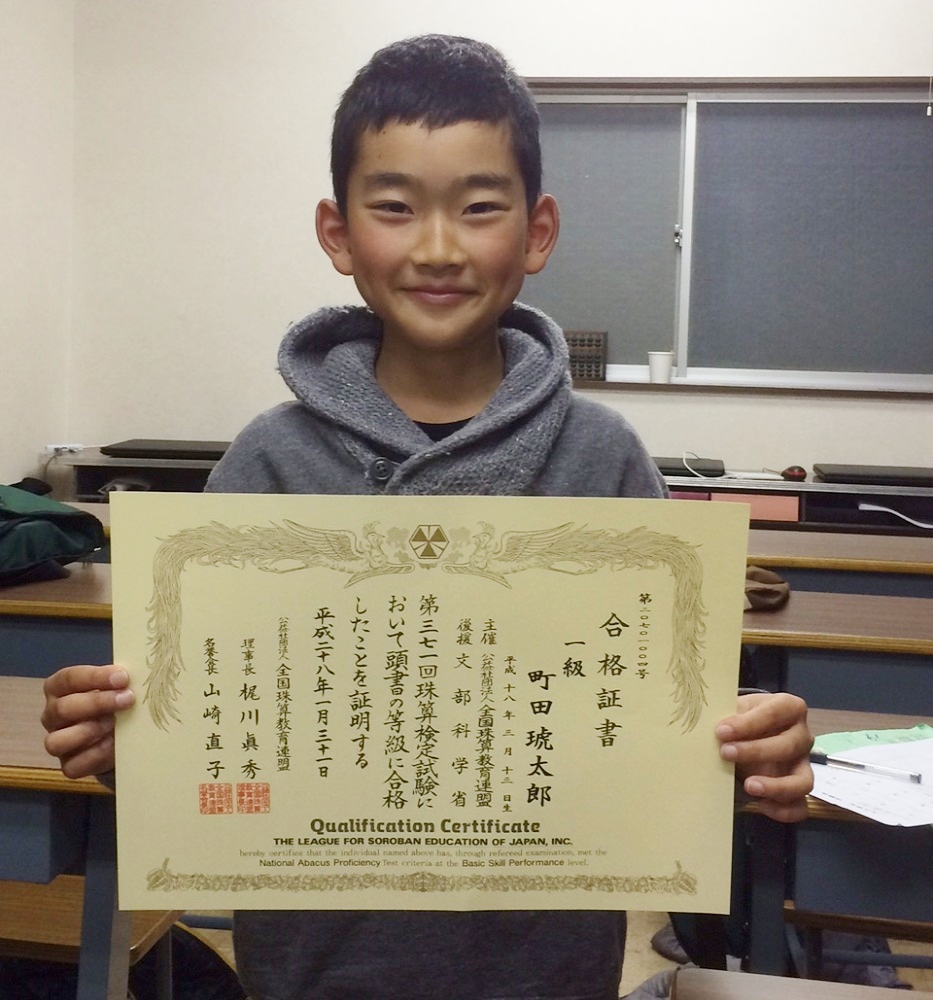 第二〇七〇一〇〇〇号
合格証書
一級
町田琥太郎
平成十八年三月十三日生
主催 公益社団法人全国珠算教育連盟
後援 文部科学省
第三七一回珠算検定試験に
おいて頭書の等級に合格
したことを証明する
平成二十八年一月三十一日
公益社団法人 全国珠算教育連盟
理事長 梶川眞秀
名誉会長 山崎直子
Qualification Certificate
THE LEAGUE FOR SOROBAN EDUCATION OF JAPAN, INC.
hereby certifies that the individual named above has, through refereed examination, met the
National Abacus Proficiency Test criteria at the Basic Skill Performance level.